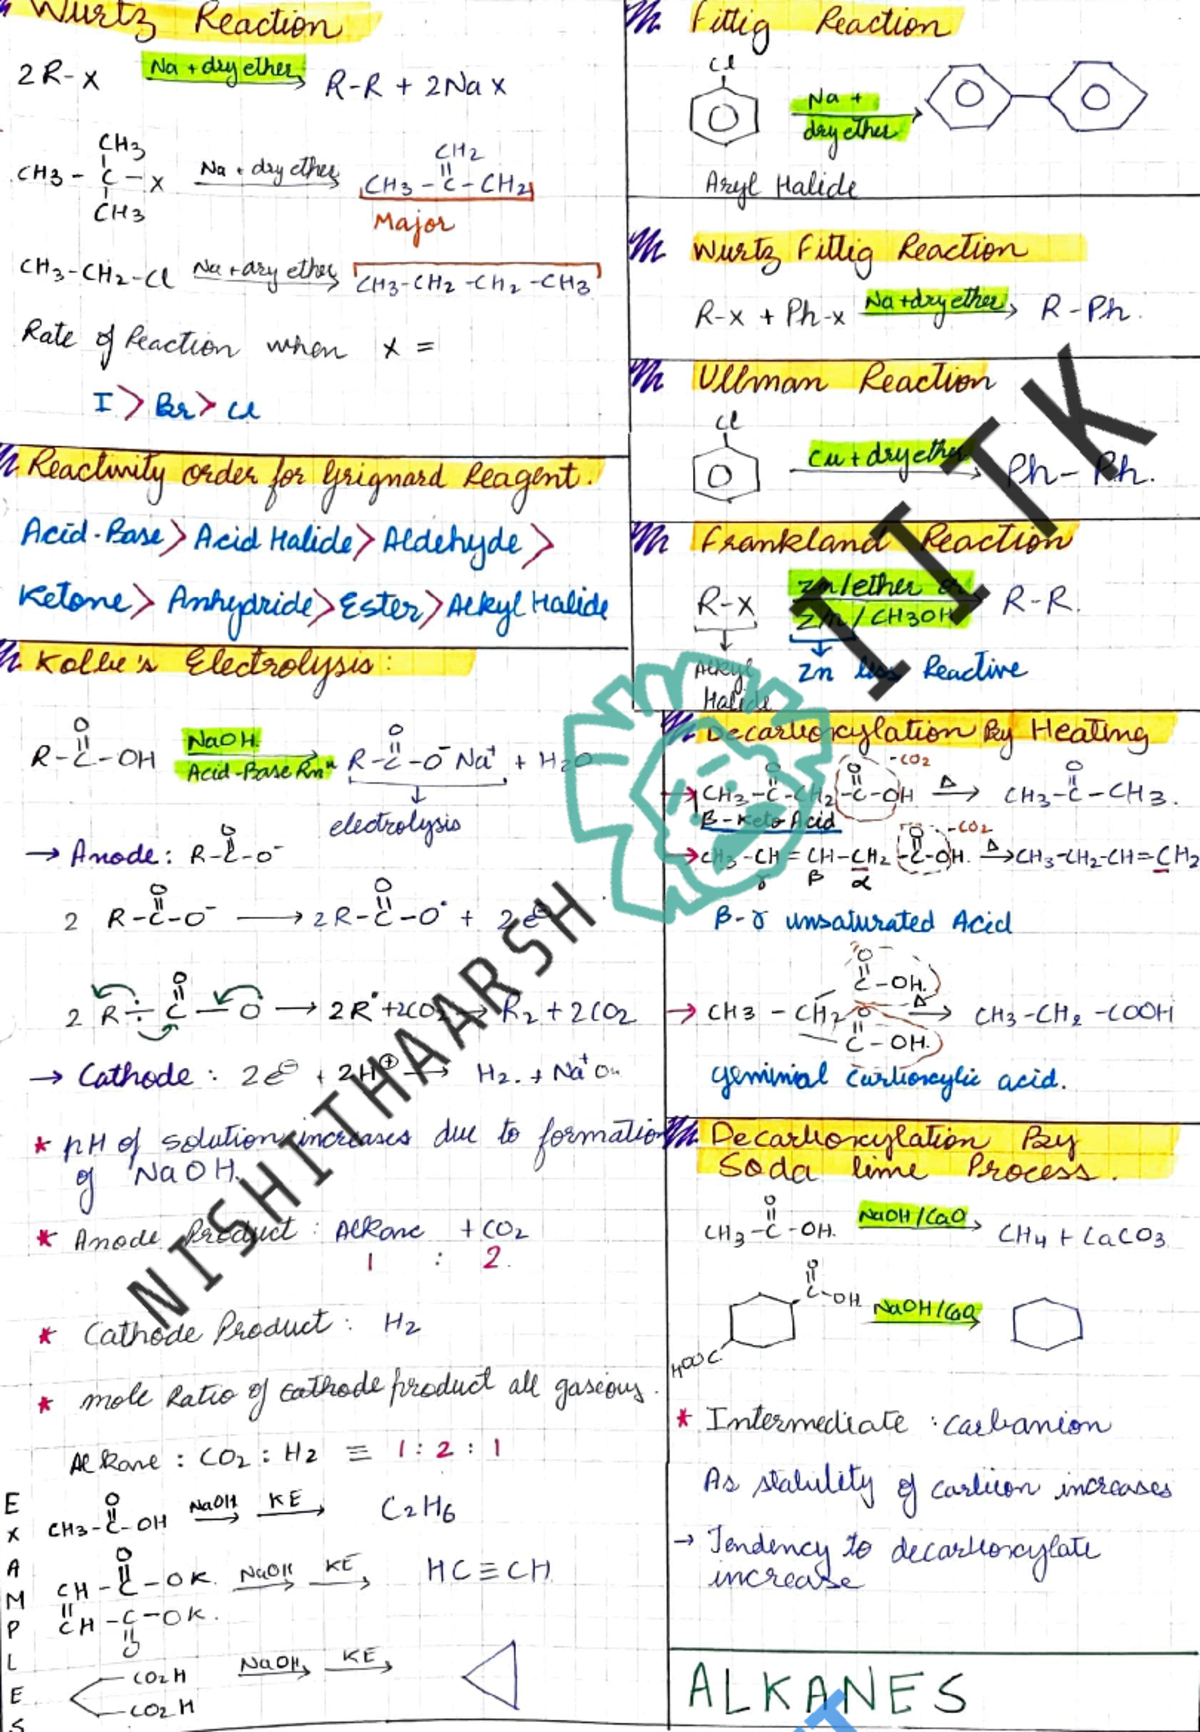 Wurtz Reaction
2R-X  Na + dry ether  R-R + 2Nax
CH3
CH3 - C - X  Na + dry ether  CH3 - C - CH2
CH2
CH3
Major
CH3-CH2-Cl  Na + dry ether  CH3-CH2-CH2-CH3
Rate of Reaction when x =
I > Br > Cl
Reactivity order for Grignard Reagent.
Acid-Base > Acid Halide > Aldehyde >
Ketone > Anhydride > Ester > Alkyl Halide
Kolbe's Electrolysis:
O
R-C-OH  NaOH  Acid-Base Rxn  R-C-O⁻ Na⁺ + H2O
electrolysis
→ Anode: R-C-O⁻
2 R-C-O⁻ → 2R-C-O• + 2e⊖
2 R-C-O → 2R• + 2CO2 → R2 + 2CO2
→ Cathode: 2e⊖ + 2H⊕ → H2. + Na⁺
* pH of solution increases due to formation
of NaOH.
* Anode Product: Alkane + CO2
1 : 2.
* Cathode Product: H2
* mole Ratio of cathode product all gaseous.
Alkane : CO2 : H2 ≡ 1 : 2 : 1
EXAMPLES
CH3-C-OH  NaOH  KE  C2H6
CH-C-OK.  NaOH  KE  HC≡CH
CH-C-OK.
O
CO2H  NaOH  KE
CO2H
Fittig Reaction
Cl
Na +
dry ether
Aryl Halide
Wurtz Fittig Reaction
R-x + Ph-x  Na + dry ether  R-Ph.
Ullman Reaction
Cl
Cu + dry ether  Ph-Ph.
Frankland Reaction
R-X  Zn/ether or  R-R.
Zn/CH3OH
Alkyl
Halide
Zn less Reactive
Decarboxylation By Heating
-CO2
CH3-C-CH2-C-OH  Δ  CH3-C-CH3.
β-Keto Acid
-CO2
CH3-CH=CH-CH2-C-OH.  Δ  CH3-CH2-CH=CH2
γ β α
β-γ unsaturated Acid
O
C-OH.
CH3-CH2  Δ  CH3-CH2-COOH
C-OH.
geminial carboxylic acid.
Decarboxylation By
Soda lime Process.
O
CH3-C-OH.  NaOH/CaO  CH4 + CaCO3
O
C-OH  NaOH/CaO
HOOC
* Intermediate : carbanion
As stability of carbon increases
→ Tendency to decarboxylate
increase
ALKANES
NISHITHAARSH
IITK